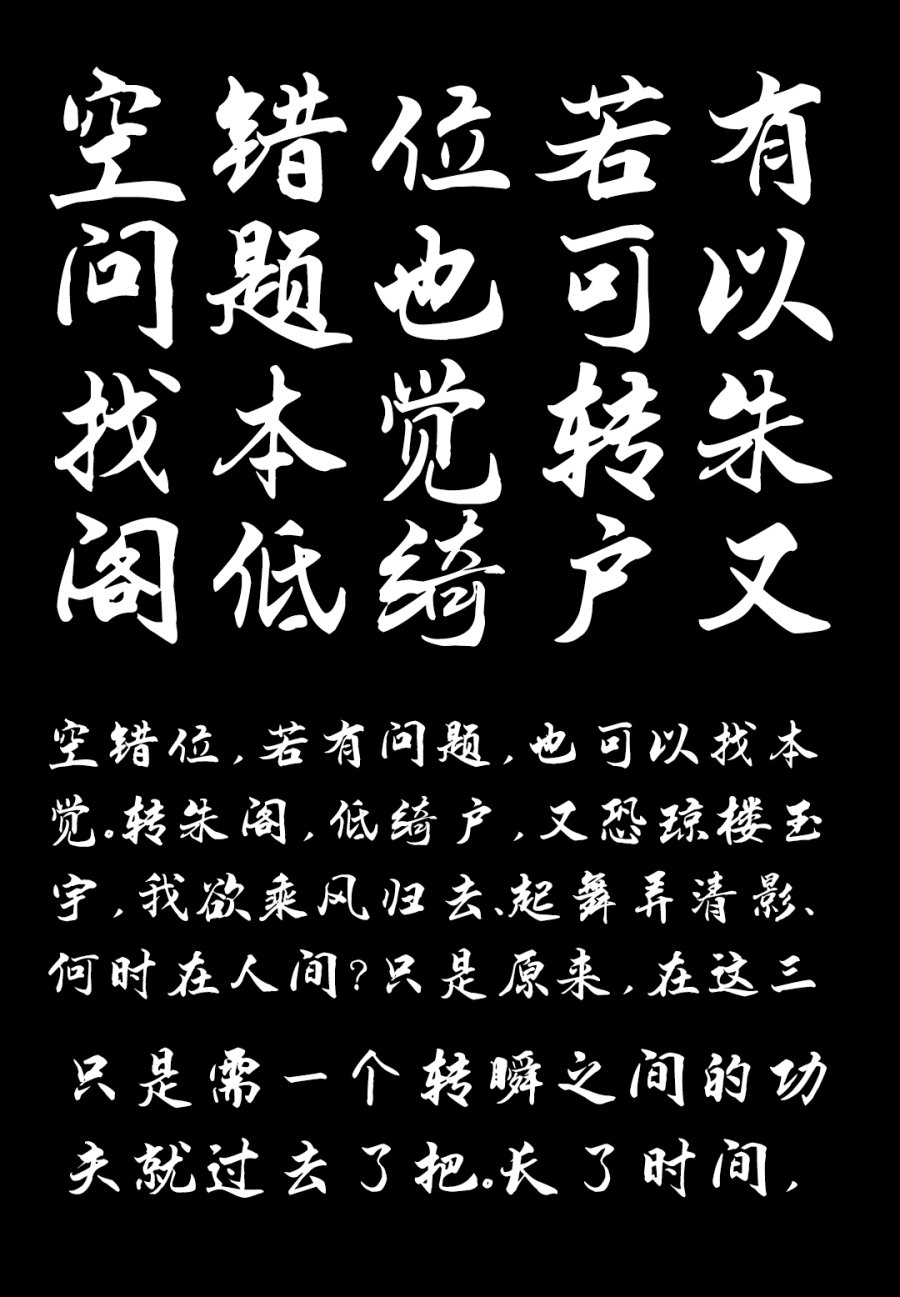 空错位若有
问题也可以
找本觉转朱
阁低绮户又
空错位,若有问题,也可以找本
觉。转朱阁,低绮户,又恐琼楼玉
宇,我欲乘风归去、起舞弄清影、
何时在人间?只是原来,在这三
只是需一个转瞬之间的功
夫就过去了把。长了时间,